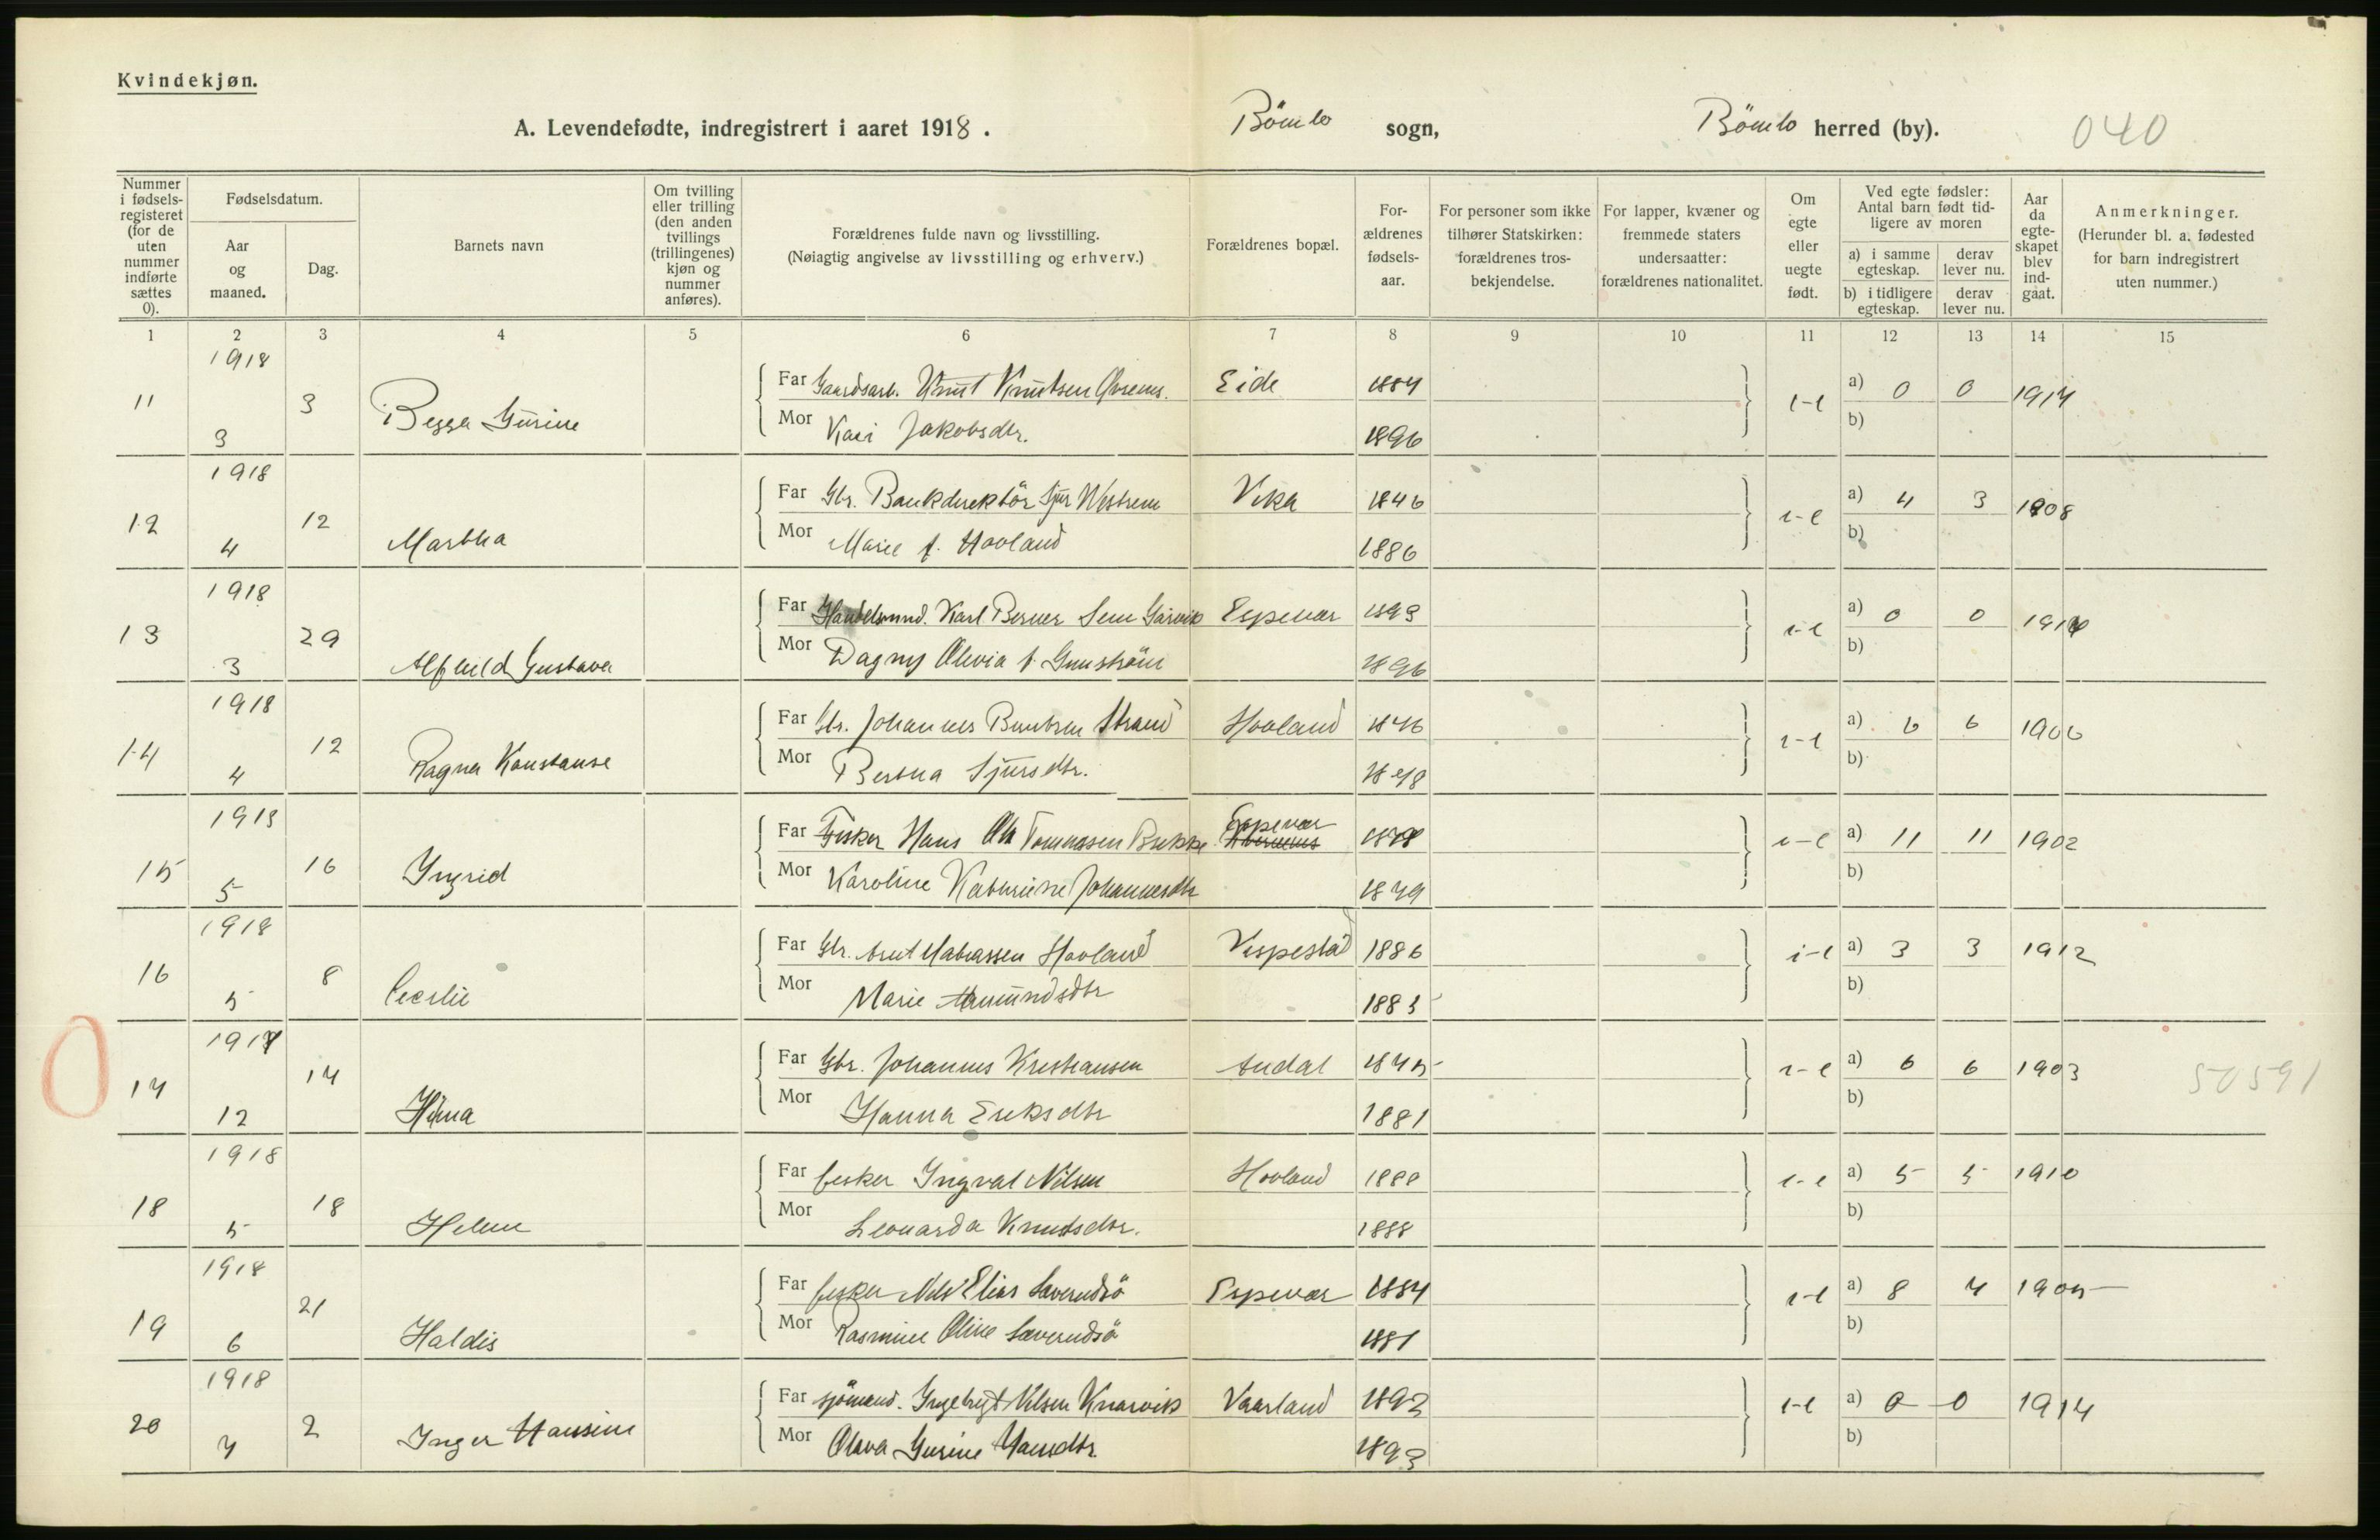 Kvindekjøn.
A. Levendefødte, indregistrert i aaret 1918. Bömlo sogn, Bömlo herred (by). 040
Nummer i fødsels-registeret (for de uten nummer indførte sættes 0).
Fødselsdatum.
Aar og maaned.
Dag.
Barnets navn
Om tvilling eller trilling (den anden tvillings (trillingenes) kjøn og nummer anføres).
Forældrenes fulde navn og livsstilling.
(Nøiagtig angivelse av livsstilling og erhverv.)
Forældrenes bopæl.
For-ældrenes fødsels-aar.
For personer som ikke tilhører Statskirken: forældrenes tros-bekjendelse.
For lapper, kvæner og fremmede staters undersaatter: forældrenes nationalitet.
Om egte eller uegte født.
Ved egte fødsler: Antal barn født tid-ligere av moren
a) i samme egteskap. derav lever nu.
b) i tidligere egteskap. derav lever nu.
Aar da egte-skapet blev ind-gaat.
Anmerkninger.
(Herunder bl. a. fødested for barn indregistrert uten nummer.)
1 2 3 4 5 6 7 8 9 10 11 12 13 14 15
1918
Far Gaardsarb. Knut Knutsen Eide 1884
11 3 Gurine a) 0 0 1917
3 Mor Kari Jakobsdtr. 1896 b)
1918
Far Gbr. Bankdirektör Sjur Vestrem Vika 1846
12 12 a) 4 3 1908
4 Martha Mor Marie f. Hovland 1886 b)
1918
Far Handelsmnd. Karl Berner Espevær 1893
13 29 a) 0 0
3 Alfhild Gustava Mor Dagny Olevia f. 1896 b)
1918
Far Gbr. Johannes Strand Hovland
14 12 a) 6 6 1906
4 Ragna Konstanse Mor Bertha Sjursdtr. b)
1918
Far Fisker Hans Ole Tomassen Espevær
15 16 Ingrid a) 11 11 1902
5 Mor Karoline Kathrine Johannesdtr 1879 b)
1918
Far Gbr. Hovland Vespestad 1886
16 8 a) 3 3 1912
5 Cecelie Mor Marie Amundsdtr 1883 b)
1917
Far Gbr. Johannes Kristiansen 1875
17 14 a) 6 6 1903 50591
12 Mor Hanna Eriksdtr 1881 b)
1918
Far fisker Ingval Nilsen Hovland 1888
18 18 a) 5 5 1910
5 Helene Mor Leonarda Knutsdtr. 1888 b)
1918
Far fisker Nils Elias Espevær 1884
19 21 a) 8 7 1905
6 Haldis Mor Rasmine Oline 1881 b)
1918
Far sjömand. Ingebrigt Nilsen Knarvik Vaarland 1892
20 2 Inger Hansine a) 0 0 1917
7 Mor Olava Gurine Hansdtr. 1893 b)